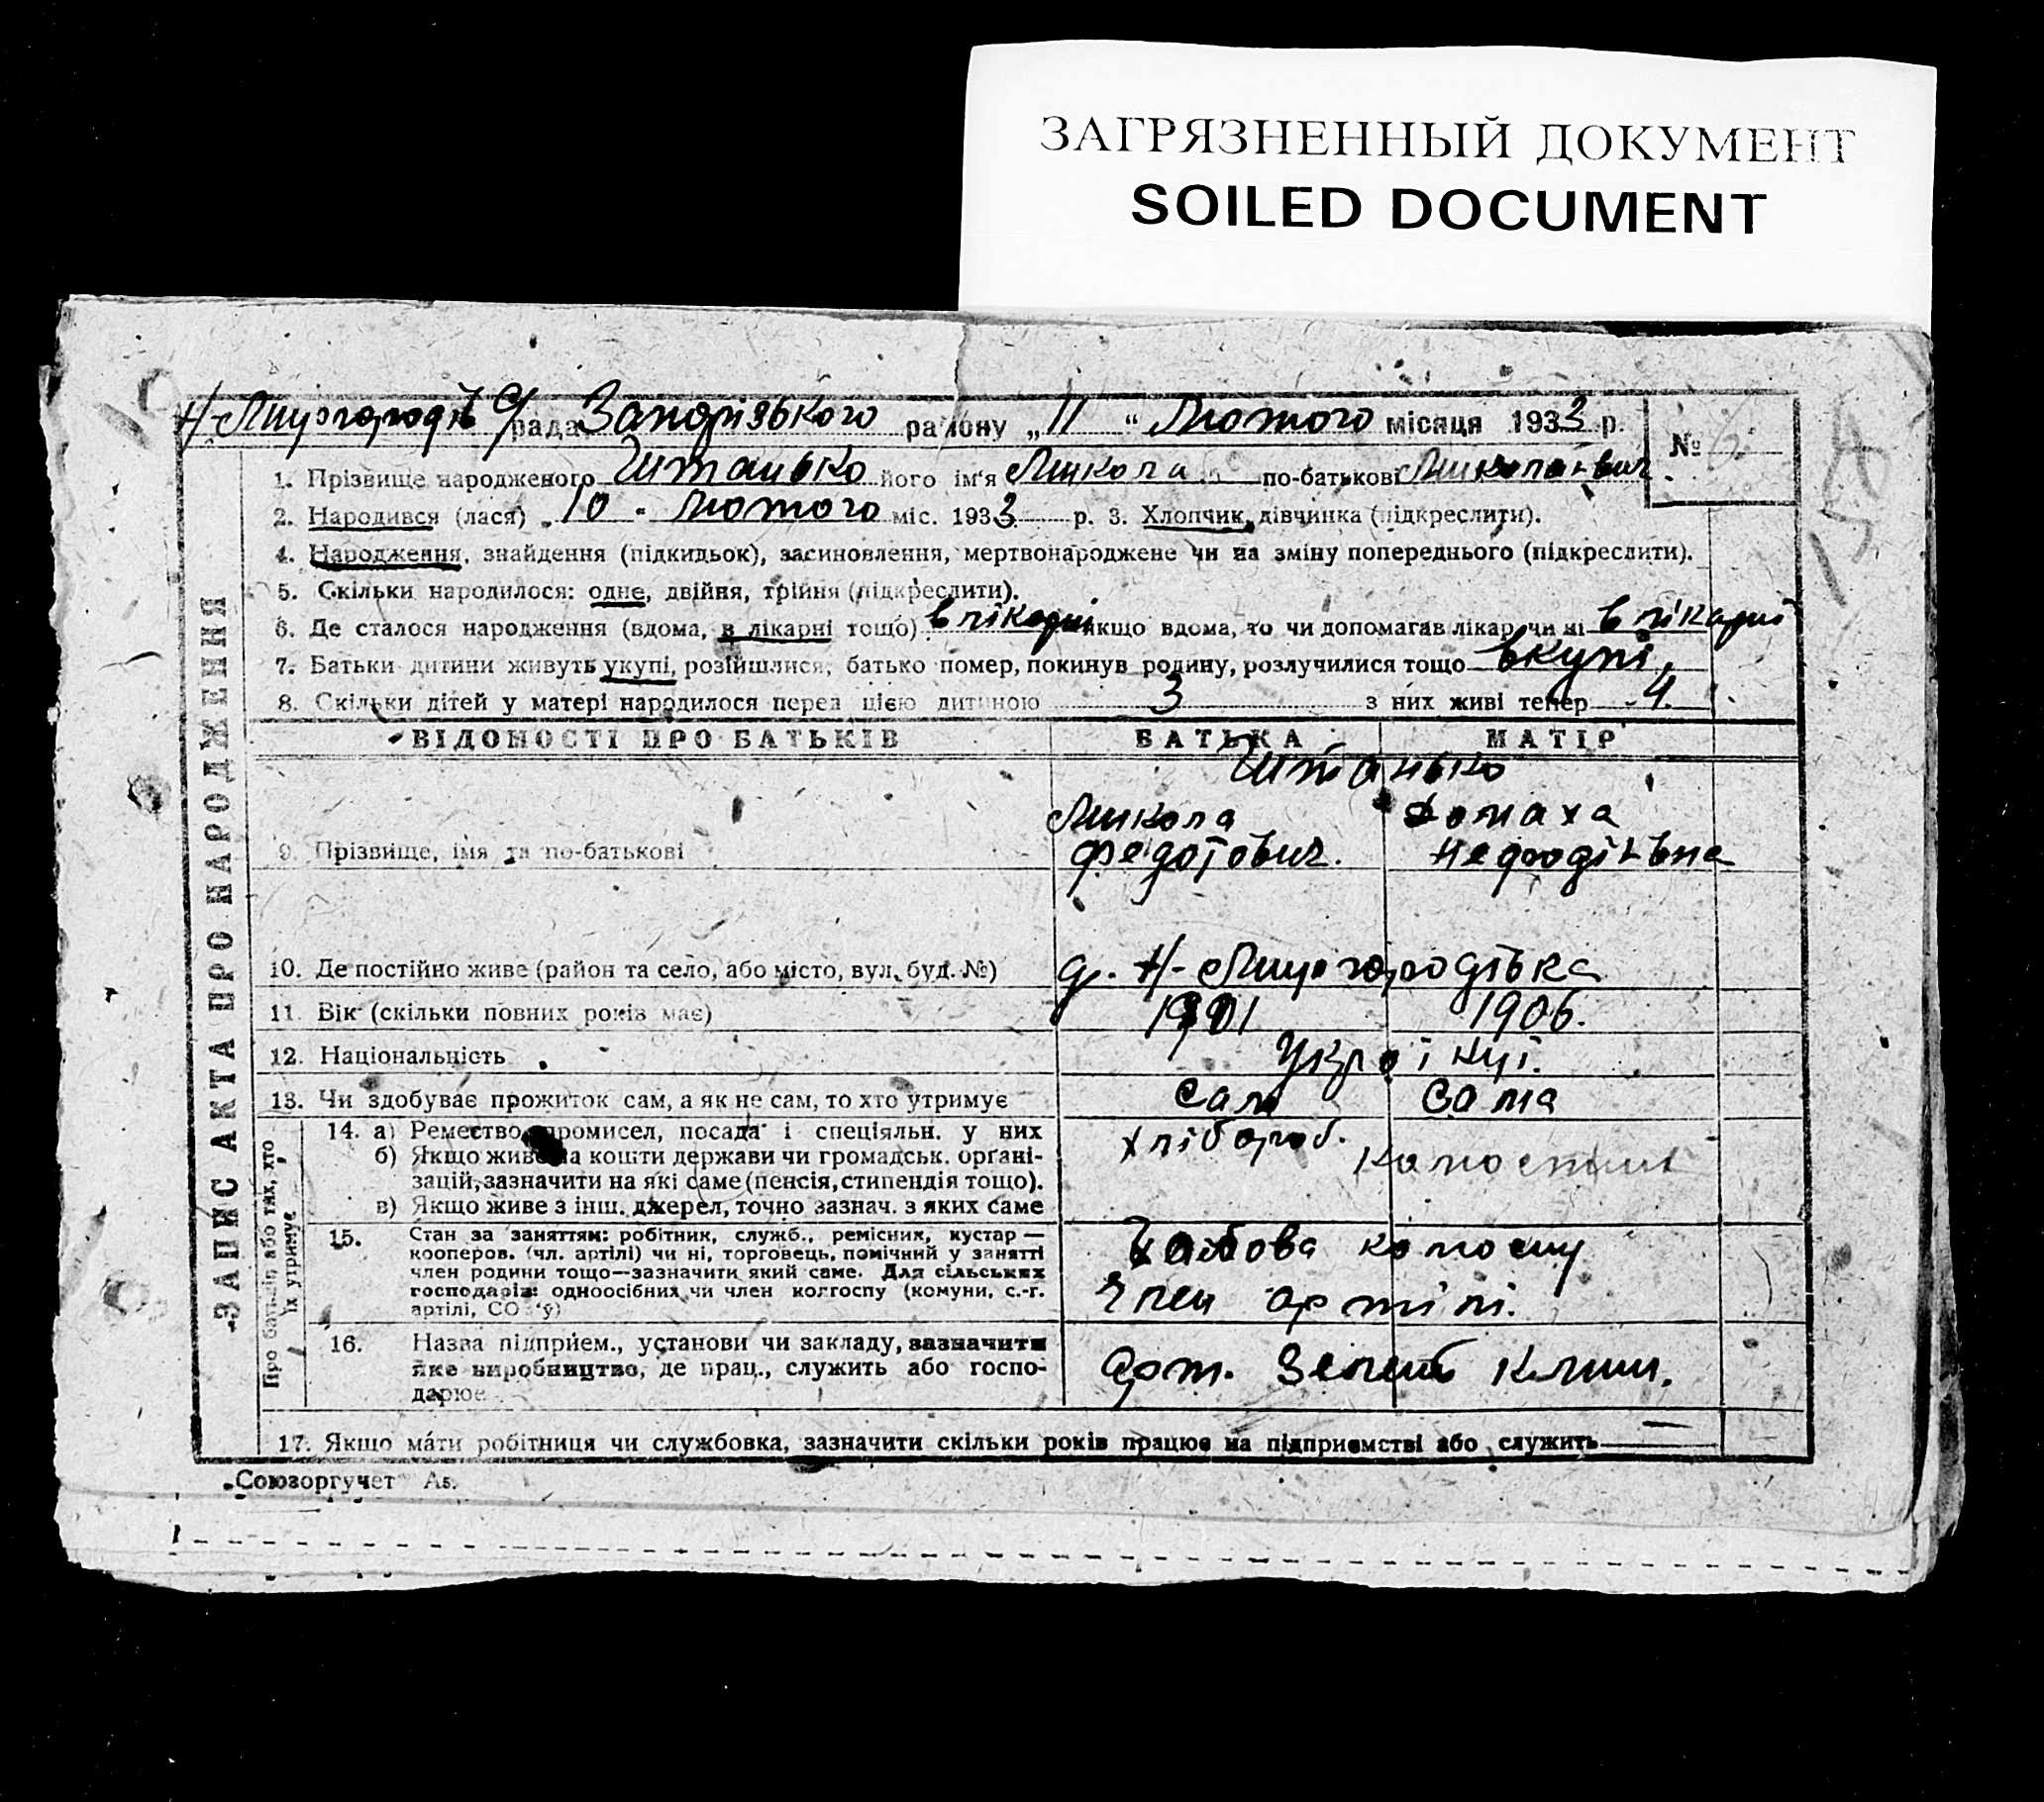 ЗАГРЯЗНЕННЫЙ ДОКУМЕНТ
SOILED DOCUMENT
Н-Миргородів с/рада Запорізького району „ 11 “ Лютого місяця 1933 р. №
1. Прізвище народженого Штанько його ім'я Микола по-батькові Миколаєвич.
2. Народився (лася) „ 10 " Лютого міс. 1933 р. 3. Хлопчик, дівчинка (підкреслити).
4. Народження, знайдення (підкидьок), засиновлення, мертвонароджене чи на зміну попереднього (підкреслити).
5. Скільки народилося: одне, двійня, трійня (підкреслити).
6. Де сталося народження (вдома, в лікарні тощо) в лікарні якщо вдома, то чи допомагав лікар чи ні в лікарні
7. Батьки дитини живуть укупі, розійшлися, батько помер, покинув родину, розлучилися тощо вкупі.
8. Скільки дітей у матері народилося перед цією дитиною 3 з них живі тепер 4.
ЗАПИС АКТА ПРО НАРОДЖЕННЯ
ВІДОМОСТІ ПРО БАТЬКІВ БАТЬКА МАТІР
Штанько
Микола Домаха
9. Прізвище, імя та по-батькові Федотович. Нефодівна
10. Де постійно живе (район та село, або місто, вул. буд. №) д. Н-Миргородівка
11. Вік (скільки повних років має) 1901 1906.
12. Національність Українці.
13. Чи здобуває прожиток сам, а як не сам, то хто утримує сам сама
Про батьків або тих, хто їх утримує
14. а) Ремество, промисел, посада і спеціяльн. у них хлібороб.
б) Якщо живе на кошти держави чи громадськ. органі-
зацій, зазначити на які саме (пенсія, стипендія тощо).
в) Якщо живе з інш. джерел, точно зазнач. з яких саме
15. Стан за заняттям: робітник, служб., ремісник, кустар —
кооперов. (чл. артілі) чи ні, торговець, помічний у занятті
член родини тощо—зазначити який саме. Для сільських
господарів: одноосібник чи член колгоспу (комуни, с.-г.
артілі, СОЗ'у)
член артілі.
16. Назва підприєм., установи чи закладу, зазначити
яке виробництво, де прац., служить або госпо-
дарює
Арт. Зелений Клин.
17. Якщо мати робітниця чи службовка, зазначити скільки років працює на підприємстві або служить —
„Союзоргучет“ А5.